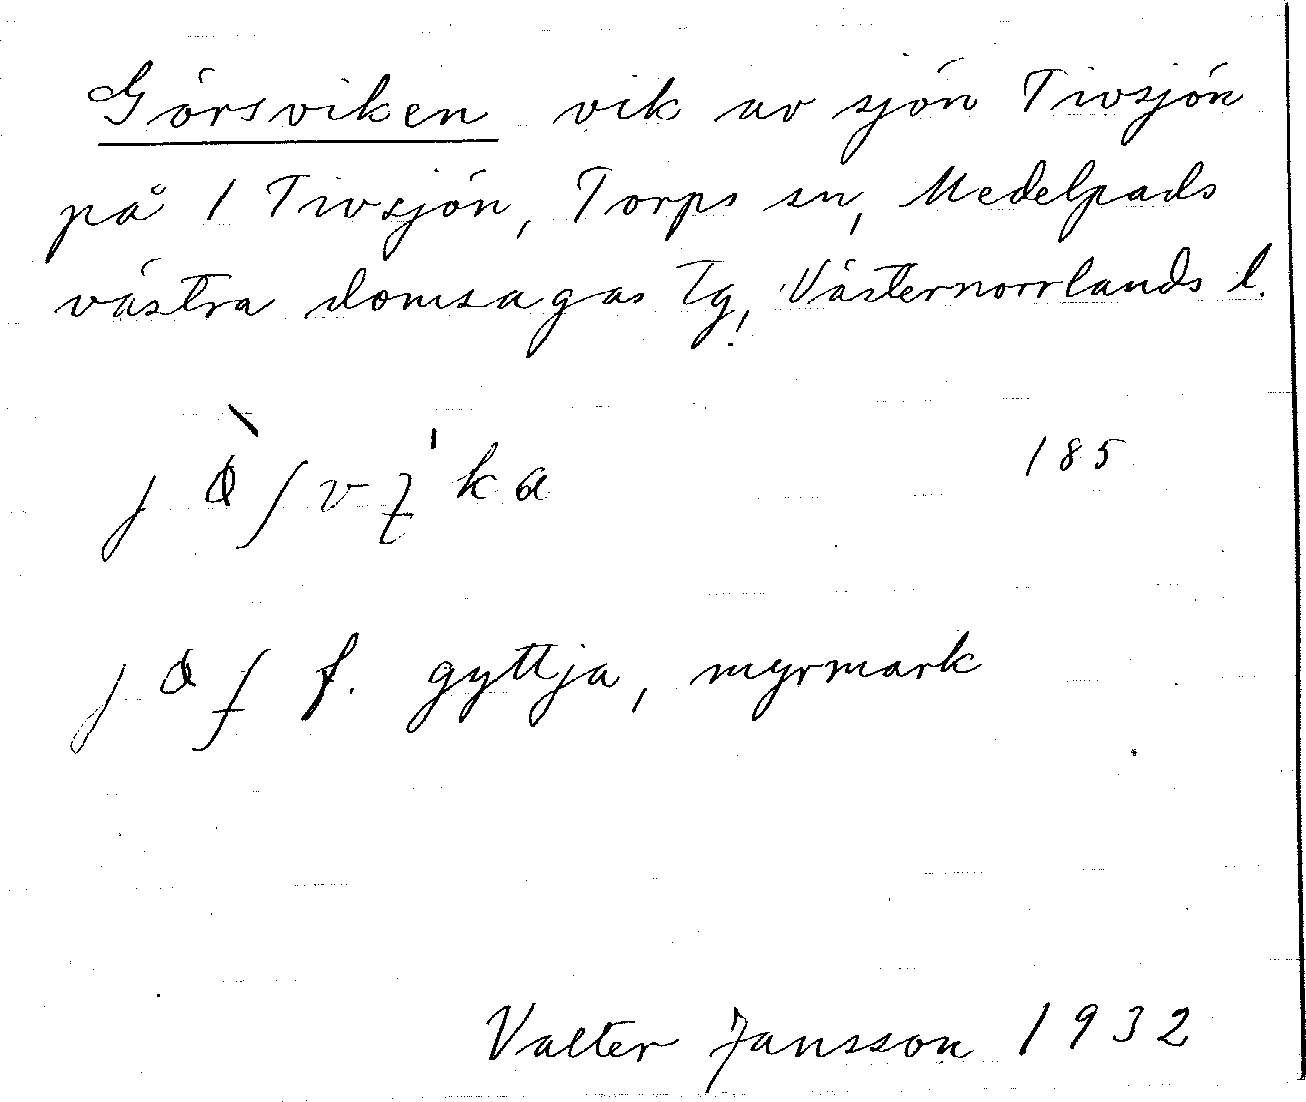 Görsviken vik av sjön Tivsjön
på 1 Tivsjön, Torps sn, Medelpads
västra domsagas tg, Västernorrlands l.
185
f. gyttja, myrmark
Valter Jansson 1932